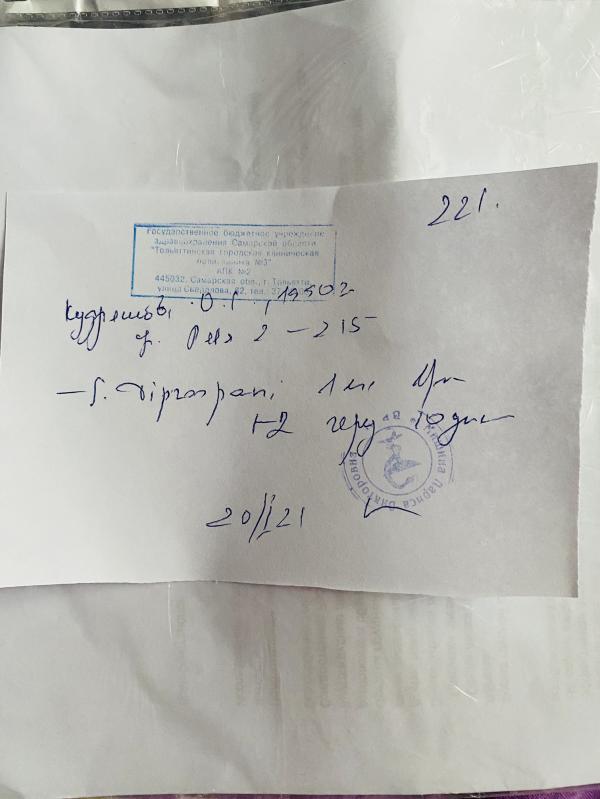 221.
Государственное бюджетное учреждение
здравоохранения Самарской области
"Тольяттинская городская клиническая
поликлиника №3"
АПК №2
445032, Самарская обл., г. Тольятти,
улица Свердлова, 82, тел. 37
О.Г., 1950г
2 – 215
– S. Diprospani 1 ml
1-2
Лариса Викторовна
20/I 21